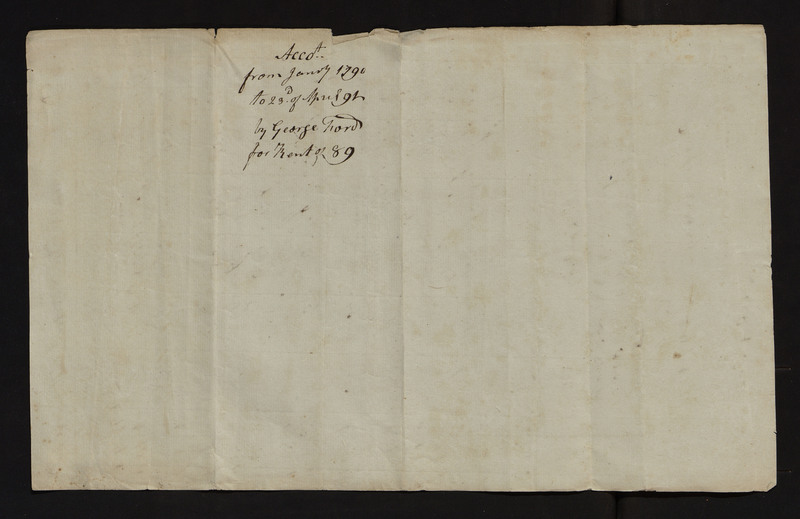 Accot
from Janry 1790
to 23d of April 91
by George Ford
for Rent of 89